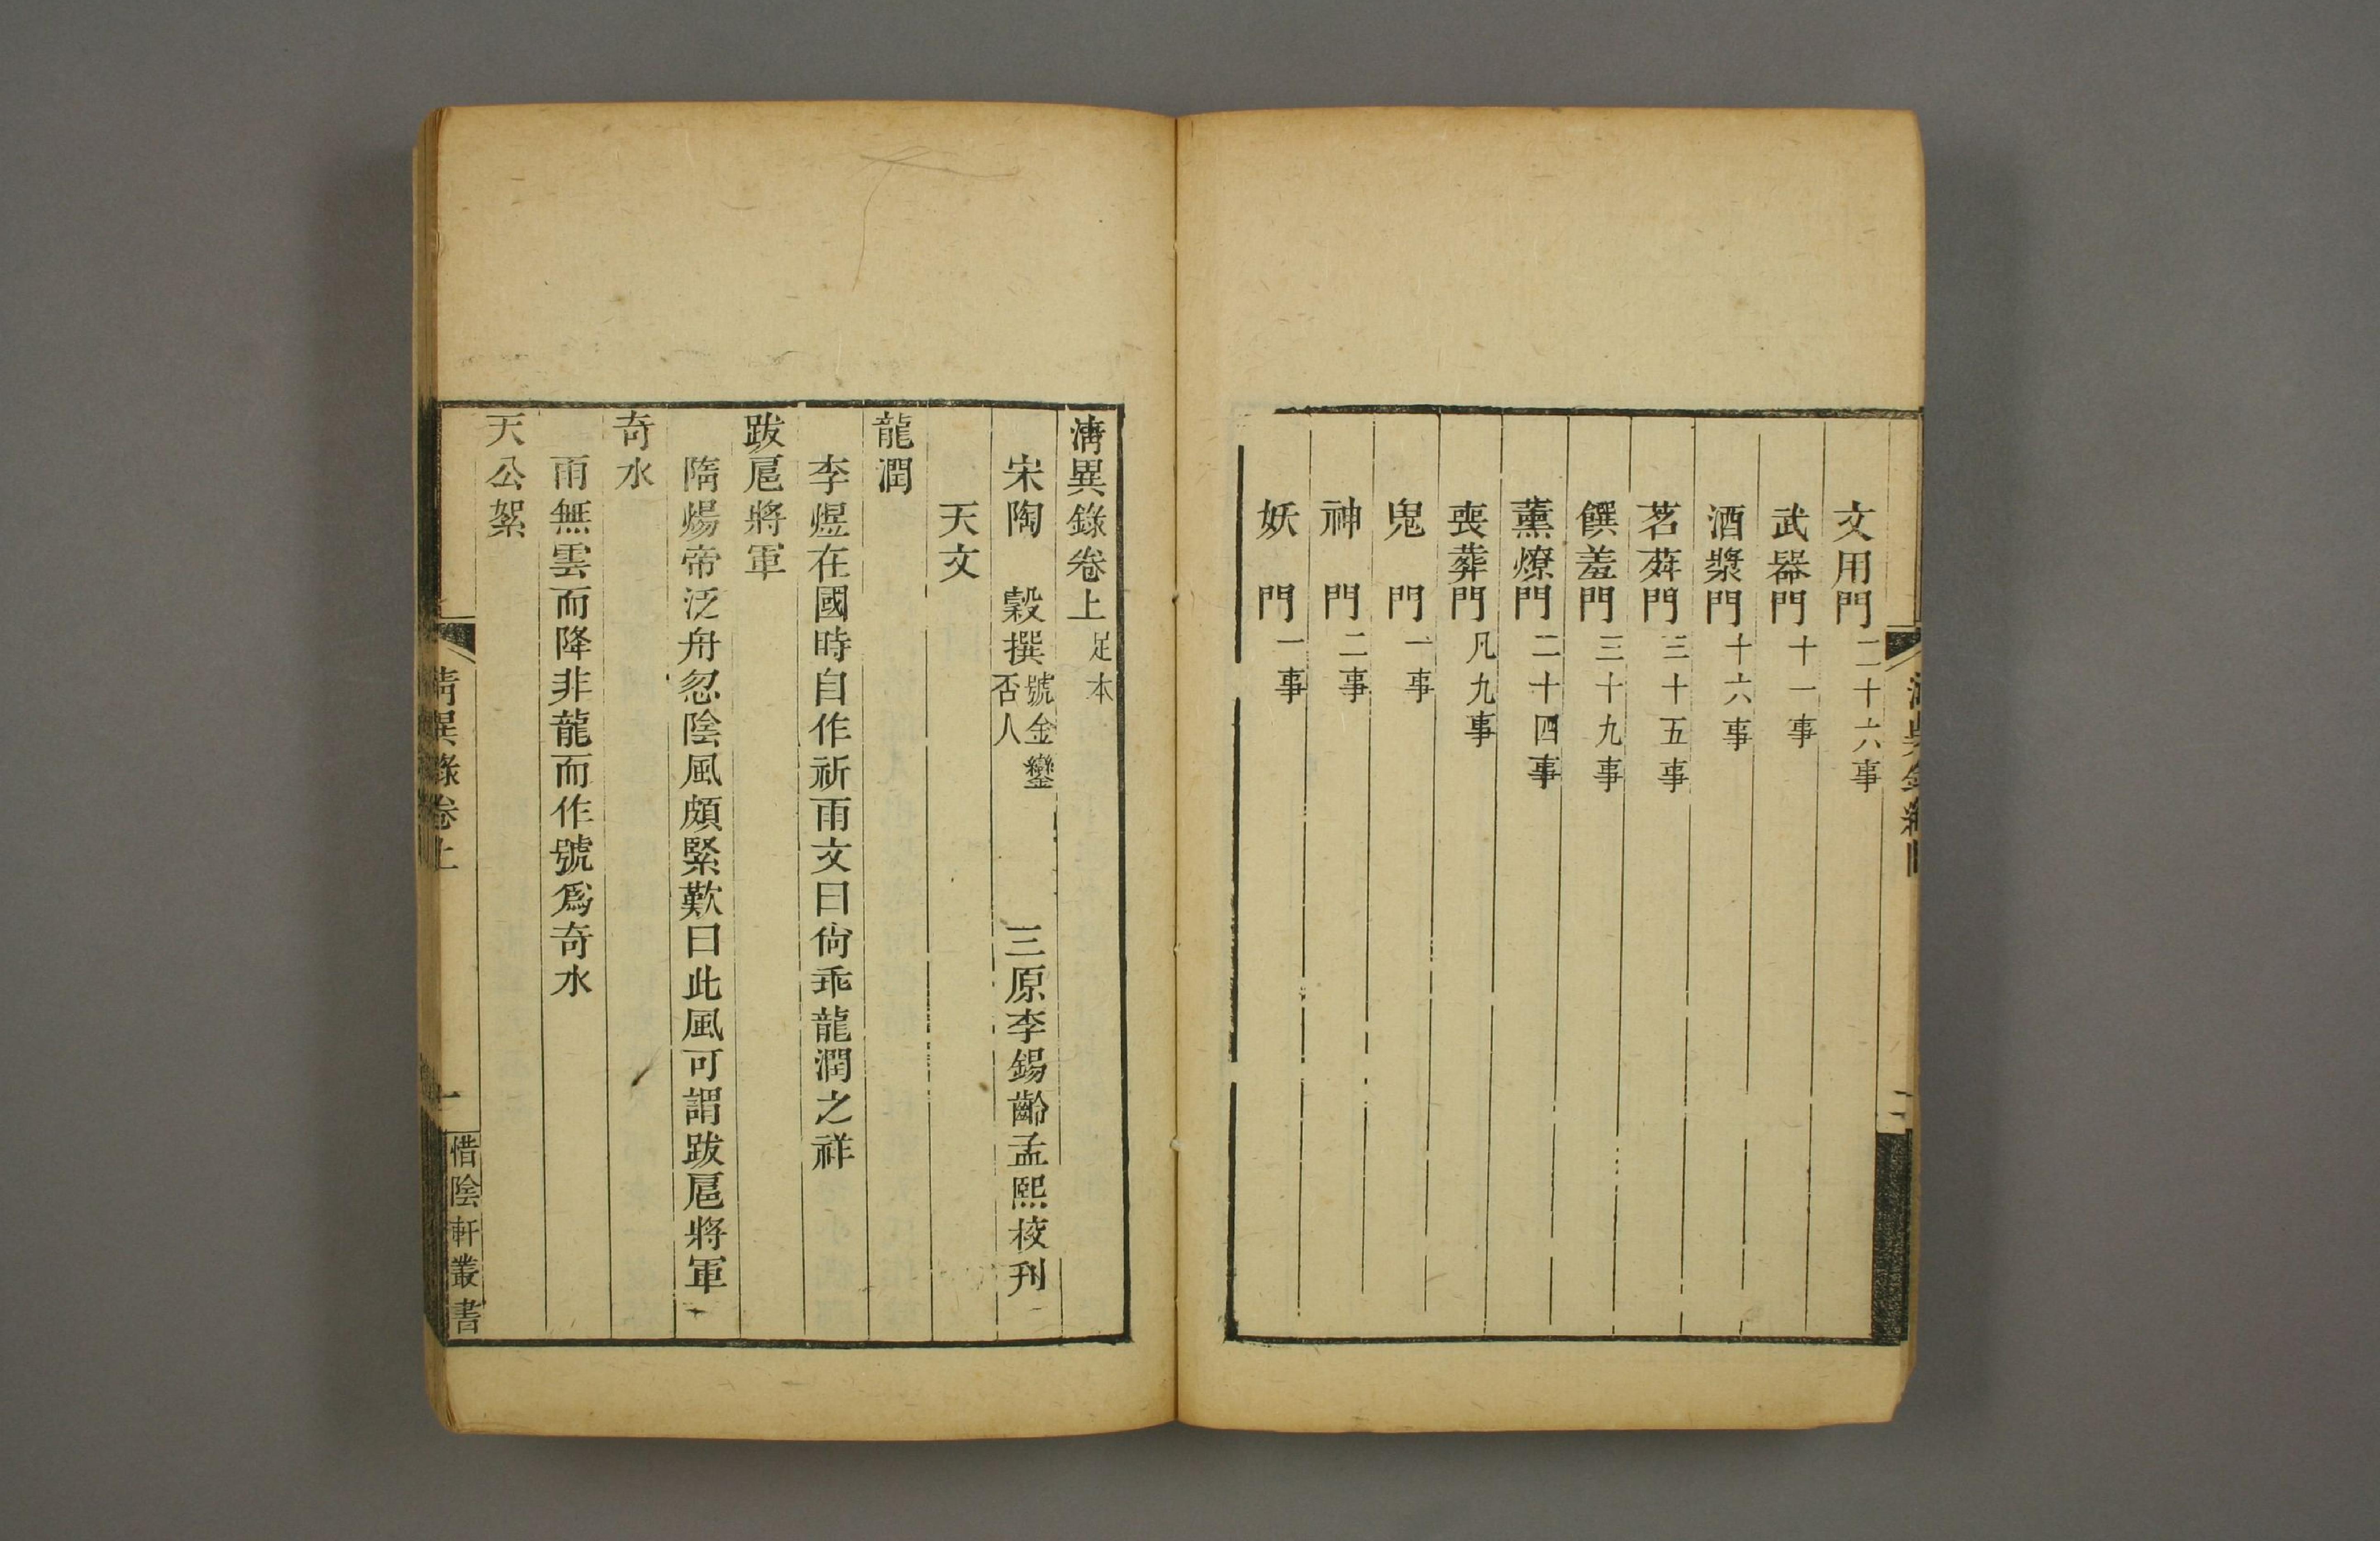 文用門二十六事
武器門十一事
酒漿門十六事
茗荈門三十五事
饌羞門三十九事
薰燎門二十四事
喪葬門凡九事
鬼門一事
神門二事
妖門一事
二
清異錄卷上足本
宋陶穀撰號金鑾否人 三原李錫齡孟熙校刊
天文
龍潤
李煜在國時自作祈雨文曰尙乖龍潤之祥
跋扈將軍
隋煬帝泛舟忽陰風頗緊歎曰此風可謂跋扈將軍
奇水
雨無雲而降非龍而作號爲奇水
天公絮
清異錄卷上 一 惜陰軒叢書